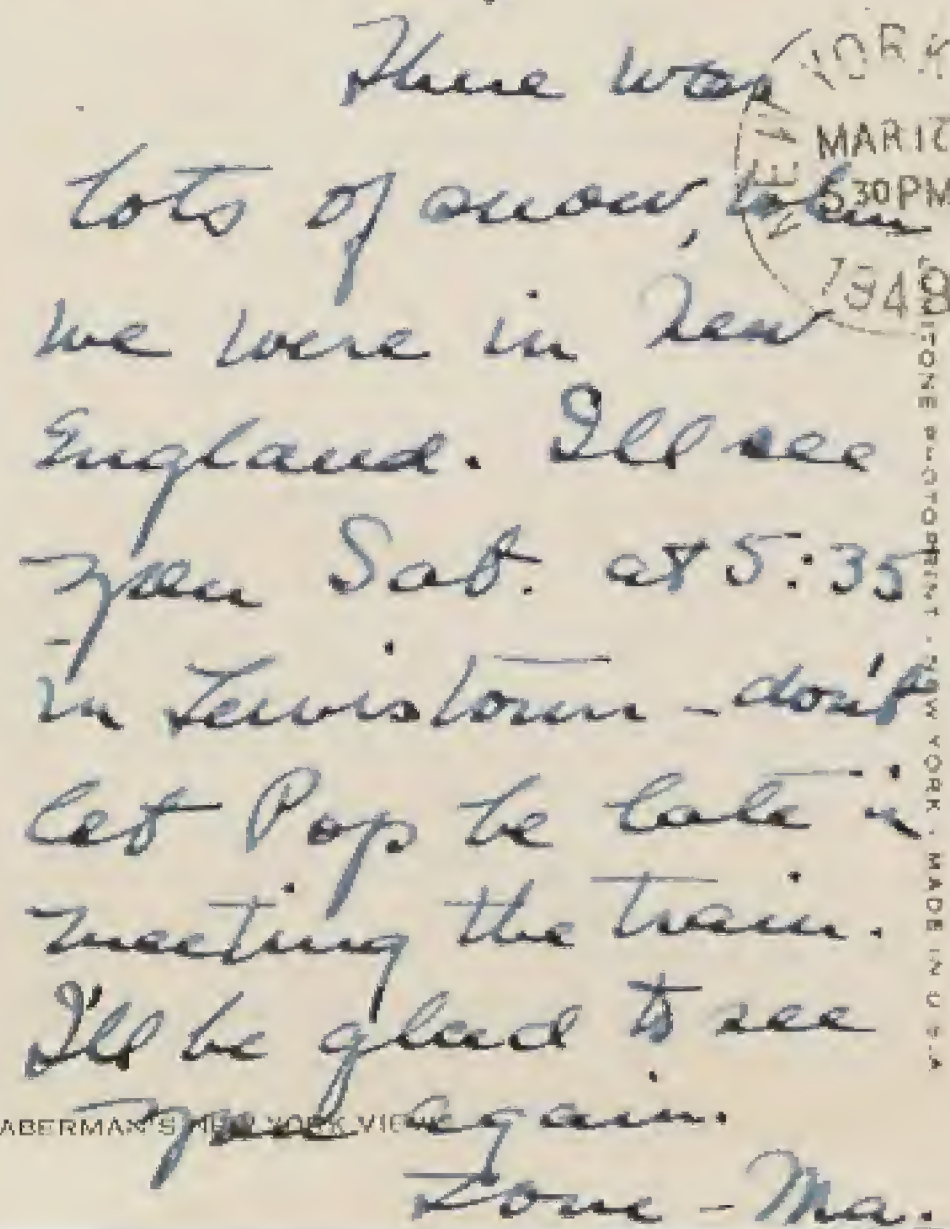 There was
lots of snow, when
we were in New
England. I'll see
you Sat. at 5:35
in Lewistown - don't
let Pop be late in
meeting the train.
I'll be glad to see
you again.
Love - Ma.
NEW YORK
MAR
530 PM
1940
LUMITONE PHOTOPRINT · NEW YORK · MADE IN U.S.A
ABERMAN'S NEW YORK VIEWS